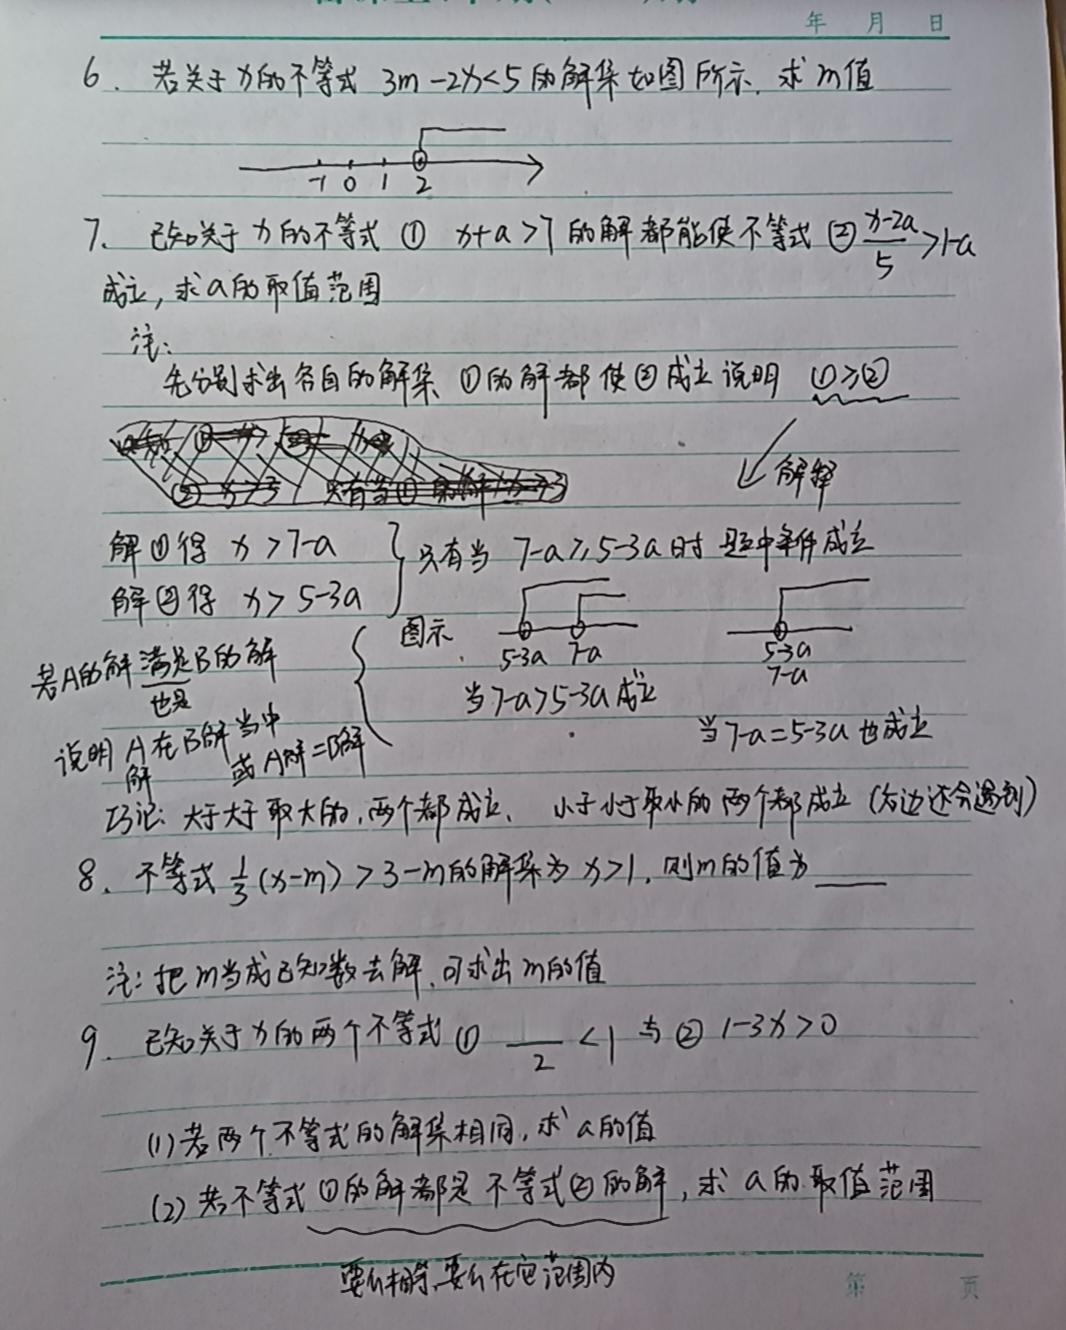 年 月 日
6. 若关于x的不等式 3m-2x<5的解集如图所示. 求m值
-1 0 1 2
7. 已知关于x的不等式 ① x+a>7的解都能使不等式 ② (x-2a)/5 >1-a
成立, 求a的取值范围
注:
先分别求出各自的解集 ①的解都使②成立说明 ①≥②
解释
解①得 x>7-a
只有当 7-a≥5-3a时 题中条件成立
解②得 x>5-3a
图示
5-3a 7-a
5-3a
7-a
若A的解满足B的解
也是
当7-a>5-3a成立
当7-a=5-3a也成立
说明 A在B解当中
解
或A解=B解
巧记: 大于大于取大的, 两个都成立、 小于小于取小的 两个都成立 (后边还会遇到)
8. 不等式 1/3(x-m)>3-m的解集为x>1, 则m的值为____
注: 把m当成已知数去解, 可求出m的值
9. 已知关于x的两个不等式 ① —/2 <1 与 ② 1-3x>0
(1) 若两个不等式的解集相同, 求a的值
(2) 若不等式①的解都是不等式②的解, 求a的取值范围
要么相等, 要么在它范围内
第 页